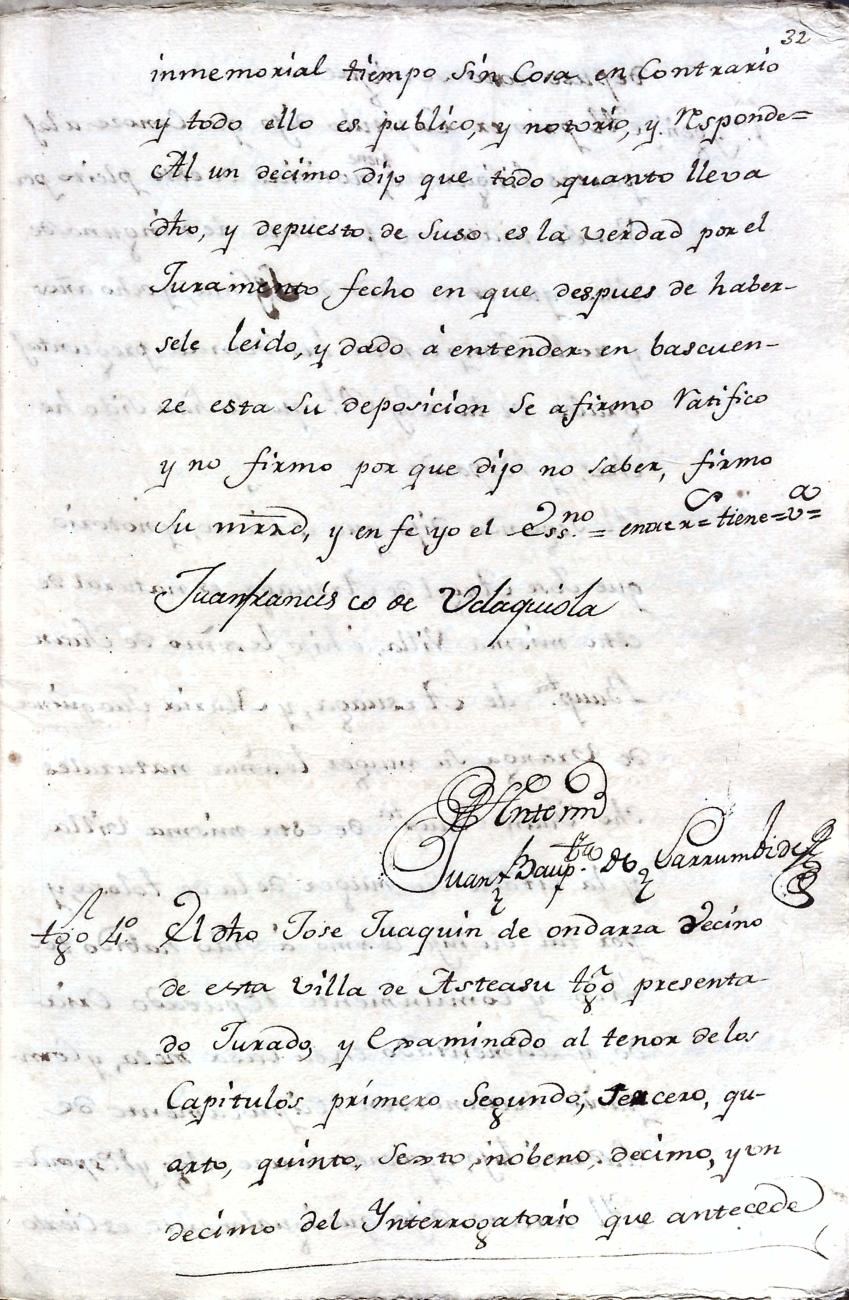 32
inmemorial tiempo sin Cosa en Contrario
y todo ello es publico, y notorio, y Responde=
Al un decimo dijo que todo quanto lleva
tiene
dho, y depuesto de suso es la verdad por el
Juramento fecho en que despues de haber-
sele leido, y dado à entender en bascuen-
ze esta su deposicion se afirmo Ratifico
y no firmo por que dijo no saber, firmo
su mrrd, y en fe yo el Ess.no = entre rs = tiene = va =
Juan francisco de Vdaquiola
Antemi
Juan Baup.ta de Larrumbide
tgo 4.º El dho Jose Juaquin de ondarza vecino
de esta villa de Asteasu tgo presenta
do Jurado, y Examinado al tenor de los
Capitulos primero segundo, tercero, qu-
arto, quinto, sexto, nobeno, decimo, y on
decimo del Ynterrogatorio que antecede